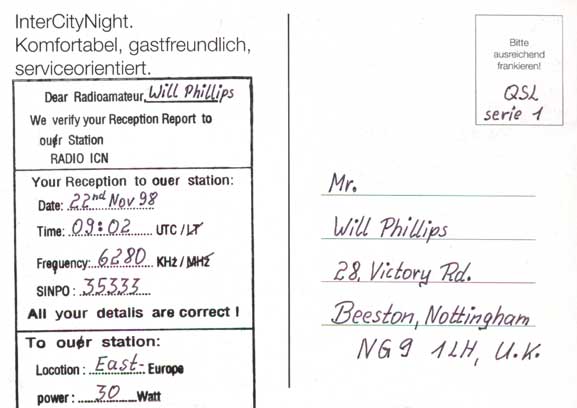 InterCityNight.
Komfortabel, gastfreundlich,
serviceorientiert.
Dear Radioamateur, Will Phillips
We verify your Reception Report to
ouer Station
RADIO ICN
Your Reception to ouer station:
Date: 22nd Nov 98
Time: 09:02 UTC / LT
Frequency: 6280 KHz / MHz
SINPO: 35333
All your details are correct !
To ouer station:
Locotion: East-Europe
power: 30 Watt
Bitte
ausreichend
frankieren!
QSL
serie 1
Mr.
Will Phillips
28, Victory Rd.
Beeston, Nottingham
NG9 1LH, U.K.